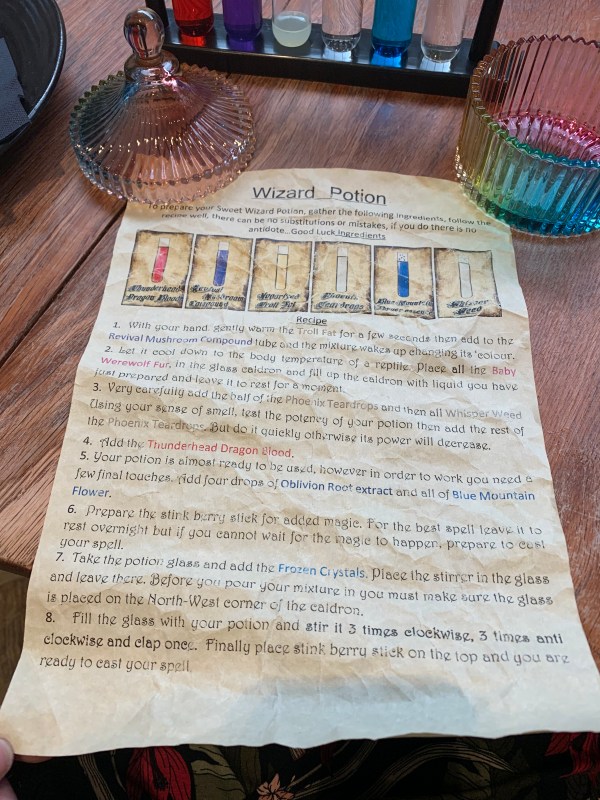 Wizard Potion
To prepare your Sweet Wizard Potion, gather the following ingredients, follow the
recipe well, there can be no substitutions or mistakes, if you do there is no
antidote. Good Luck Ingredients
Thunderhead Dragon Blood
Revival Mushroom Compound
Vaporised Troll Fat
Phoenix Tear drops
Blue Mountain Flower essence
Whisper Weed
Recipe
1. With your hand, gently warm the Troll Fat for a few seconds then add to the
Revival Mushroom Compound tube and the mixture wakes up changing its 'colour.
2. Let it cool down to the body temperature of a reptile. Place all the Baby
Werewolf Fur, in the glass caldron and fill up the caldron with liquid you have
just prepared and leave it to rest for a moment.
3. Very carefully add the half of the Phoenix Teardrops and then all Whisper Weed
Using your sense of smell, test the potency of your potion then add the rest of
the Phoenix Teardrops. But do it quickly otherwise its power will decrease.
4. Add the Thunderhead Dragon Blood.
5. Your potion is almost ready to be used, however in order to work you need a
few final touches. Add four drops of Oblivion Root extract and all of Blue Mountain
Flower.
6. Prepare the stink berry stick for added magic. For the best spell leave it to
rest overnight but if you cannot wait for the magic to happen, prepare to cast
your spell.
7. Take the potion glass and add the Frozen Crystals. Place the stirrer in the glass
and leave there. Before you pour your mixture in you must make sure the glass
is placed on the North-West corner of the caldron.
8. Fill the glass with your potion and stir it 3 times clockwise, 3 times anti
clockwise and clap once. Finally place stink berry stick on the top and you are
ready to cast your spell.